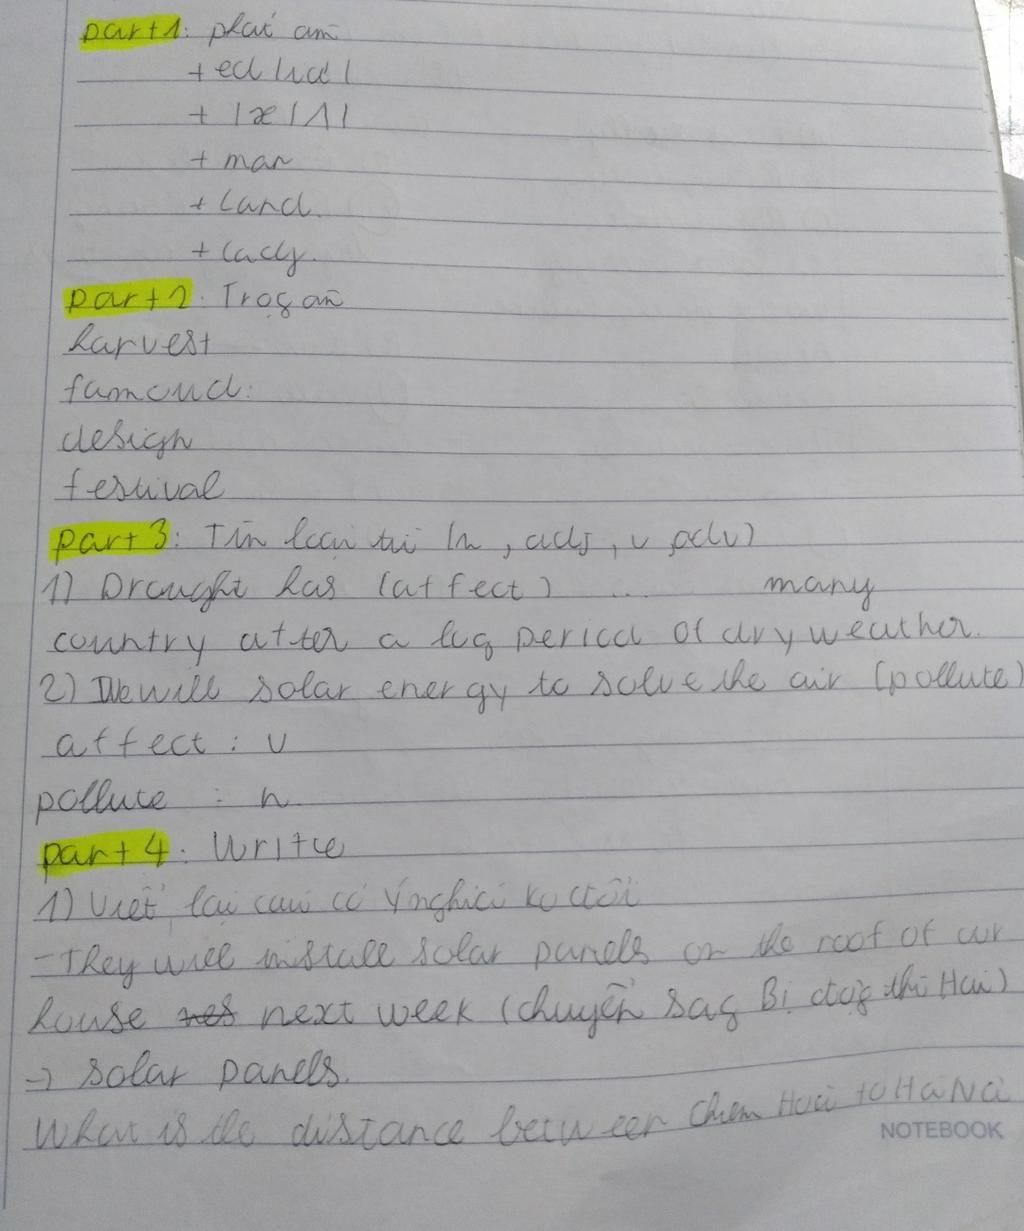 part 1: phát âm
+ ed /ɪd/
+ /æ/ʌ/
+ man
+ land.
+ lady.
part 2: Trọg âm
harvest
famoud:
design
festival
part 3: Tìn loại từ (n, adj, v, adv)
1) Drought has (affect) ... many
country after a log period of dry weather.
2) We will solar energy to solve the air (pollute)
affect : v
pollute : n
part 4: Write
1) Viết lại câu có ý nghĩa ko đổi
- They will install solar panels on the roof of our
house next week (chuyển sag Bị độg thì Hai)
→ solar panels.
What is the distance between Chiem Hoá to Ha Nôi
NOTEBOOK